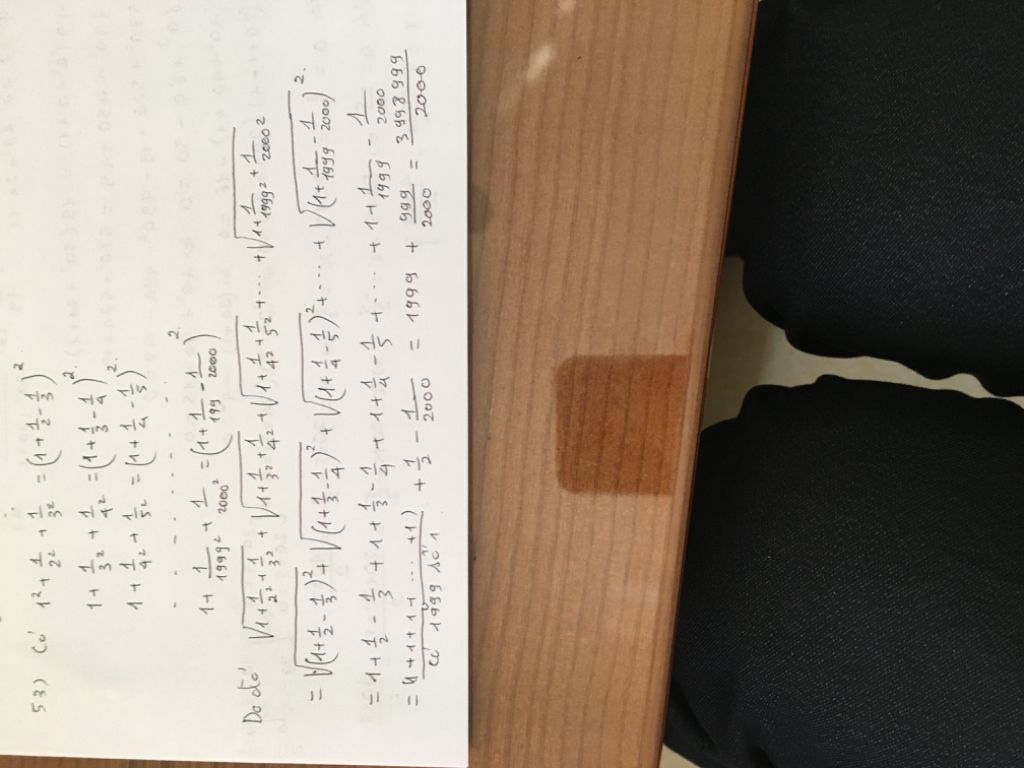 53) Có 1² + 1/2² + 1/3² = (1 + 1/2 - 1/3)²
1 + 1/3² + 1/4² = (1 + 1/3 - 1/4)²
1 + 1/4² + 1/5² = (1 + 1/4 - 1/5)²
- - - . . . . . . .
1 + 1/1999² + 1/2000² = (1 + 1/199 - 1/2000)²
Do đó √(1 + 1/2² + 1/3²) + √(1 + 1/3² + 1/4²) + √(1 + 1/4² + 1/5²) + ... + √(1 + 1/1999² + 1/2000²)
= √(1 + 1/2 - 1/3)² + √(1 + 1/3 - 1/4)² + √(1 + 1/4 - 1/5)² + .... + √(1 + 1/1999 - 1/2000)²
= 1 + 1/2 - 1/3 + 1 + 1/3 - 1/4 + 1 + 1/4 - 1/5 + .... + 1 + 1/1999 - 1/2000
= 1 + 1 + 1 + .... + 1) + 1/2 - 1/2000 = 1999 + 999/2000 = 3998999/2000
có 1999 số 1